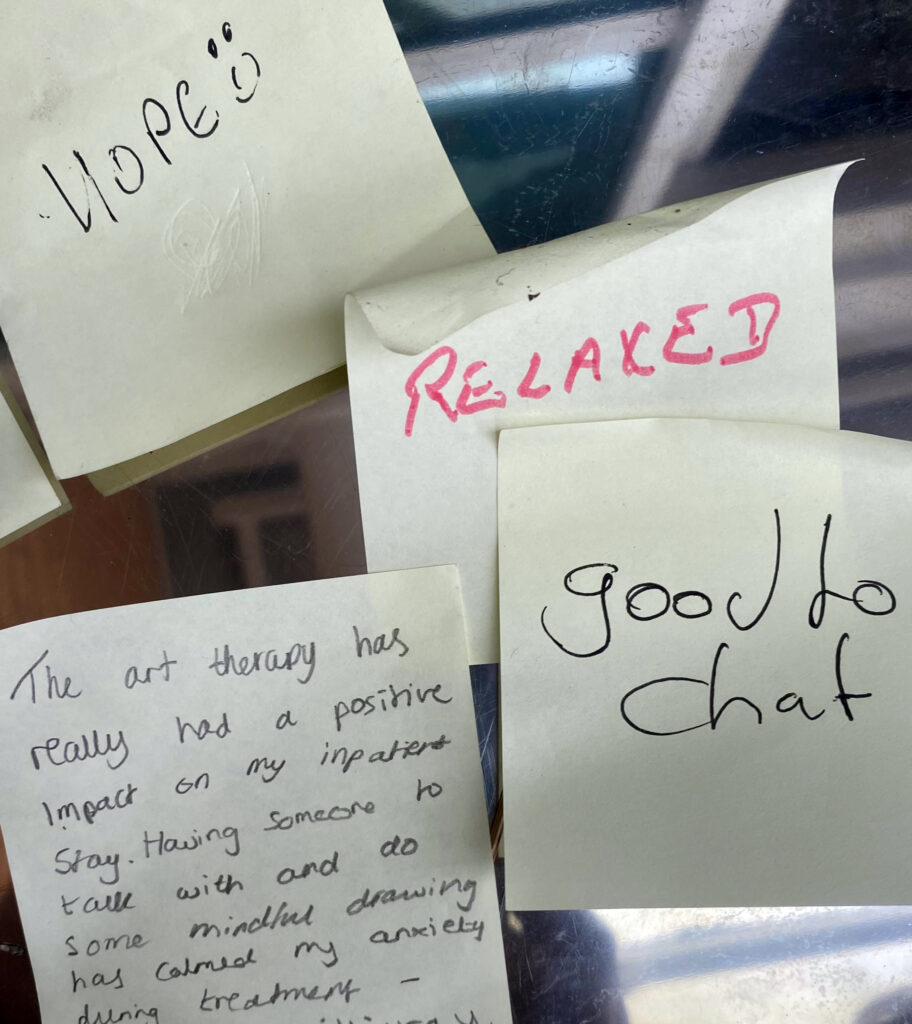 HOPE
RELAXED
good to
chat
The art therapy has
really had a positive
impact on my inpatient
Stay. Having someone to
talk with and do
some mindful drawing
has calmed my anxiety
during treatment -